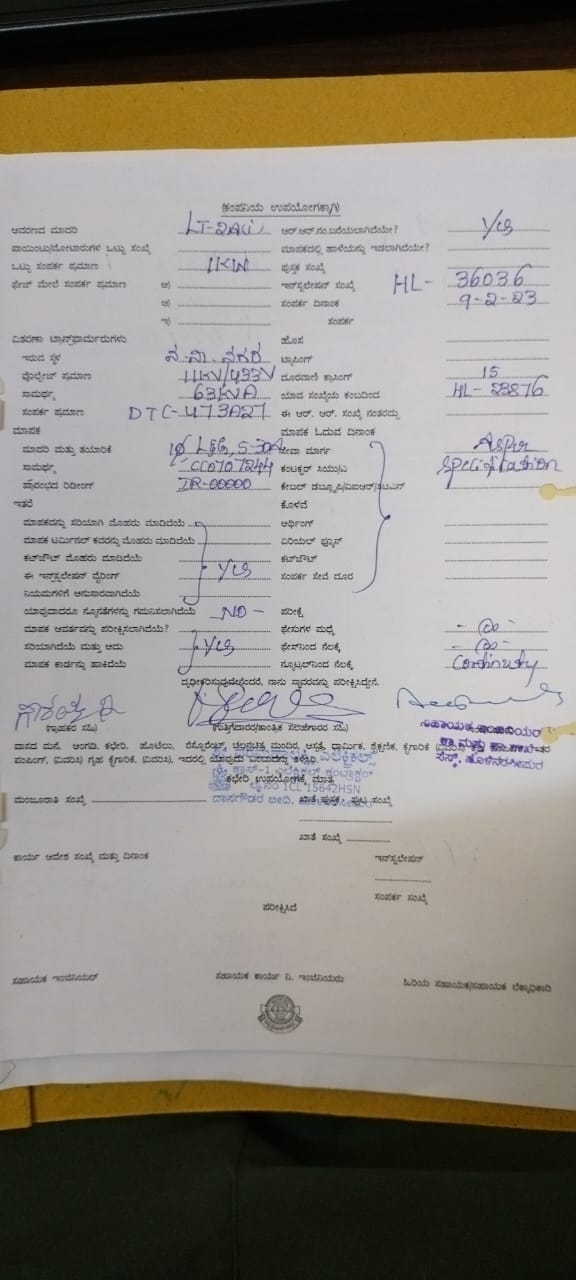 (ಕಂಪನಿಯ ಉಪಯೋಗಕ್ಕಾಗಿ)
ಆವರಣದ ಮಾದರಿ LT-2A(i) ಆರ್.ಆರ್.ನಂ.ಬರೆಯಲಾಗಿದೆಯೇ? Yes
ಪಾಯಿಂಟು/ಮೋಟಾರುಗಳ ಒಟ್ಟು ಸಂಖ್ಯೆ ಮಾಪಕದಲ್ಲಿ ಹಾಳೆಯನ್ನು ಇಡಲಾಗಿದೆಯೇ?
ಒಟ್ಟು ಸಂಪರ್ಕ ಪ್ರಮಾಣ 1KW ಪುಸ್ತಕ ಸಂಖ್ಯೆ
ಫೇಜ್ ಮೇಲೆ ಸಂಪರ್ಕ ಪ್ರಮಾಣ ಅ) ಇನ್‌ಸ್ಟಲೇಷನ್ ಸಂಖ್ಯೆ HL- 36036
ಆ) ಸಂಪರ್ಕ ದಿನಾಂಕ 9-2-23
ಇ) ಸಂಪರ್ಕ
ವಿತರಣಾ ಟ್ರಾನ್ಸ್‌ಫಾರ್ಮರುಗಳು ಹೊಸ
ಇರುವ ಸ್ಥಳ ನ.ನಿ. ನಗರ ಟ್ಯಾಪಿಂಗ್
ವೋಲ್ಟೇಜ್ ಪ್ರಮಾಣ 11KV/433V ದೂರವಾಣಿ ಕ್ರಾಸಿಂಗ್
ಸಾಮರ್ಥ್ಯ 63KVA ಯಾವ ಸಂಖ್ಯೆಯ ಕಂಬದಿಂದ 15
ಸಂಪರ್ಕ ಪ್ರಮಾಣ DTC-473A27 ಈ ಆರ್. ಆರ್. ಸಂಖ್ಯೆ ನಂತರದ್ದು HL-23876
ಮಾಪಕ ಮಾಪಕ ಓದುವ ದಿನಾಂಕ
ಮಾದರಿ ಮತ್ತು ತಯಾರಿಕೆ 1φ L&G, 5-30A ಸೇವಾ ಮಾರ್ಗ As per
ಸಾಮರ್ಥ್ಯ CC0707244 ಕಂಡಕ್ಟರ್ ಸಿಯು/ಎ Specification
ಪ್ರಾರಂಭದ ರಿಡಿಂಗ್ IR-00000 ಕೇಬಲ್ ಡಬ್ಲ್ಯೂಪಿ/ಐಆರ್/
ಇತರೆ ಕೊಳವೆ
ಮಾಪಕವನ್ನು ಸರಿಯಾಗಿ ಮೊಹರು ಮಾಡಿದೆಯೆ ಅರ್ಥಿಂಗ್
ಮಾಪಕ ಟರ್ಮಿನಲ್ ಕವರನ್ನು ಮೊಹರು ಮಾಡಿದೆಯೆ ಏರಿಯಲ್ ಫ್ಯೂಸ್
ಕಟ್‌ಔಟ್ ಮೊಹರು ಮಾಡಿದೆಯೆ ಕಟ್‌ಔಟ್
ಈ ಇನ್‌ಸ್ಟಲೇಷನ್ ವೈರಿಂಗ್ Yes ಸಂಪರ್ಕ ಸೇವೆ ದೂರ
ನಿಯಮಗಳಿಗೆ ಅನುಸಾರವಾಗಿದೆಯೆ
ಯಾವುದಾದರೂ ನ್ಯೂನತೆಗಳನ್ನು ಗಮನಿಸಲಾಗಿದೆಯೆ NO - ಪರೀಕ್ಷೆ
ಮಾಪಕ ಆವರ್ತವನ್ನು ಪರೀಕ್ಷಿಸಲಾಗಿದೆಯೆ? ಫೇಸುಗಳ ಮಧ್ಯೆ
ಸರಿಯಾಗಿದೆಯೆ ಮತ್ತು ಅದು Yes ಫೇಸ್‌ನಿಂದ ನೆಲಕ್ಕೆ
ಮಾಪಕ ಕಾರ್ಡನ್ನು ಹಾಕಿದೆಯೆ ನ್ಯೂಟ್ರಲ್‌ನಿಂದ ನೆಲಕ್ಕೆ Continuity
ದೃಢೀಕರಿಸುವುದೇನೆಂದರೆ, ನಾನು ಸ್ಥಾವರವನ್ನು ಪರೀಕ್ಷಿಸಿದ್ದೇನೆ.
(ಗ್ರಾಹಕರ ಸಹಿ) (ಗುತ್ತಿಗೆದಾರರ/ತಾಂತ್ರಿಕ ಸಲಹೆಗಾರರ ಸಹಿ) ಸಹಾಯಕ ಇಂಜಿನಿಯರ್
ವಾಸದ ಮನೆ, ಅಂಗಡಿ, ಕಛೇರಿ, ಹೊಟೆಲು, ರೆಸ್ಟೋರೆಂಟ್, ಚಲನಚಿತ್ರ ಮಂದಿರ, ಆಸ್ಪತ್ರೆ, ಧಾರ್ಮಿಕ, ಶೈಕ್ಷಣಿಕ, ಕೈಗಾರಿಕೆ
ಪಂಪಿಂಗ್, (ವಿವರಿಸಿ) ಗೃಹ ಕೈಗಾರಿಕೆ, (ವಿವರಿಸಿ), ಇದರಲ್ಲಿ ಯಾವುದು ಎಂಬುದನ್ನು ತಿಳಿಸಿರಿ. ಎಲೆಕ್ಟ್ರಿಕಲ್ಸ್ ಸೆಸ್ಕ್, ಹೊಳೆನರಸೀಪುರ
ಕ್ಲಾಸ್-1 ಎಲೆಕ್ಟ್ರಿಕಲ್ ಕಂಟ್ರಾಕ್ಟರ್
ಕಛೇರಿ ಉಪಯೋಗಕ್ಕೆ ಮಾತ್ರ
ಲೈ.ನಂ 1CL 15642HSN
ಮಂಜೂರಾತಿ ಸಂಖ್ಯೆ ದಾಸಗೌಡರ ಬೀದಿ, ಖಾತೆ ಪುಸ್ತಕ, ಪುಟ ಸಂಖ್ಯೆ
ಖಾತೆ ಸಂಖ್ಯೆ
ಕಾರ್ಯ ಆದೇಶ ಸಂಖ್ಯೆ ಮತ್ತು ದಿನಾಂಕ ಇನ್‌ಸ್ಟಲೇಷನ್
ಸಂಪರ್ಕ ಸಂಖ್ಯೆ
ಪರೀಕ್ಷಿಸಿದೆ
ಸಹಾಯಕ ಇಂಜಿನಿಯರ್ ಸಹಾಯಕ ಕಾರ್ಯ ನಿ. ಇಂಜಿನಿಯರು ಹಿರಿಯ ಸಹಾಯಕ/ಸಹಾಯಕ ಲೆಕ್ಕಾಧಿಕಾರಿ